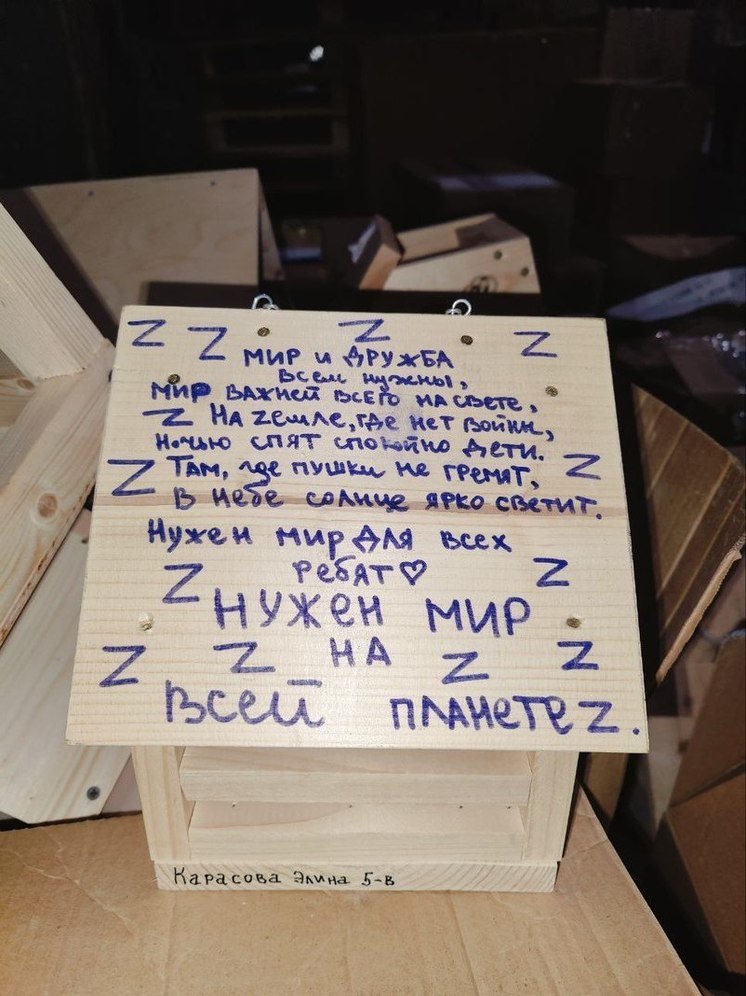 Z Z Z Z
МИР И ДРУЖБА
Всем нужны,
МИР ВАЖНЕЙ ВСЕГО НА СВЕТЕ,
Z НА ZЕМЛЕ, ГДЕ НЕТ ВОЙНЫ,
Ночью спят спокойно дети.
Z Там, где пушки не гремят, Z
В небе солнце ярко светит.
Нужен мир для всех
Z ребят♡ Z
НУЖЕН МИР
Z Z НА Z Z
Всей ПЛАНЕТЕ Z.
Карасова Элина 5-в